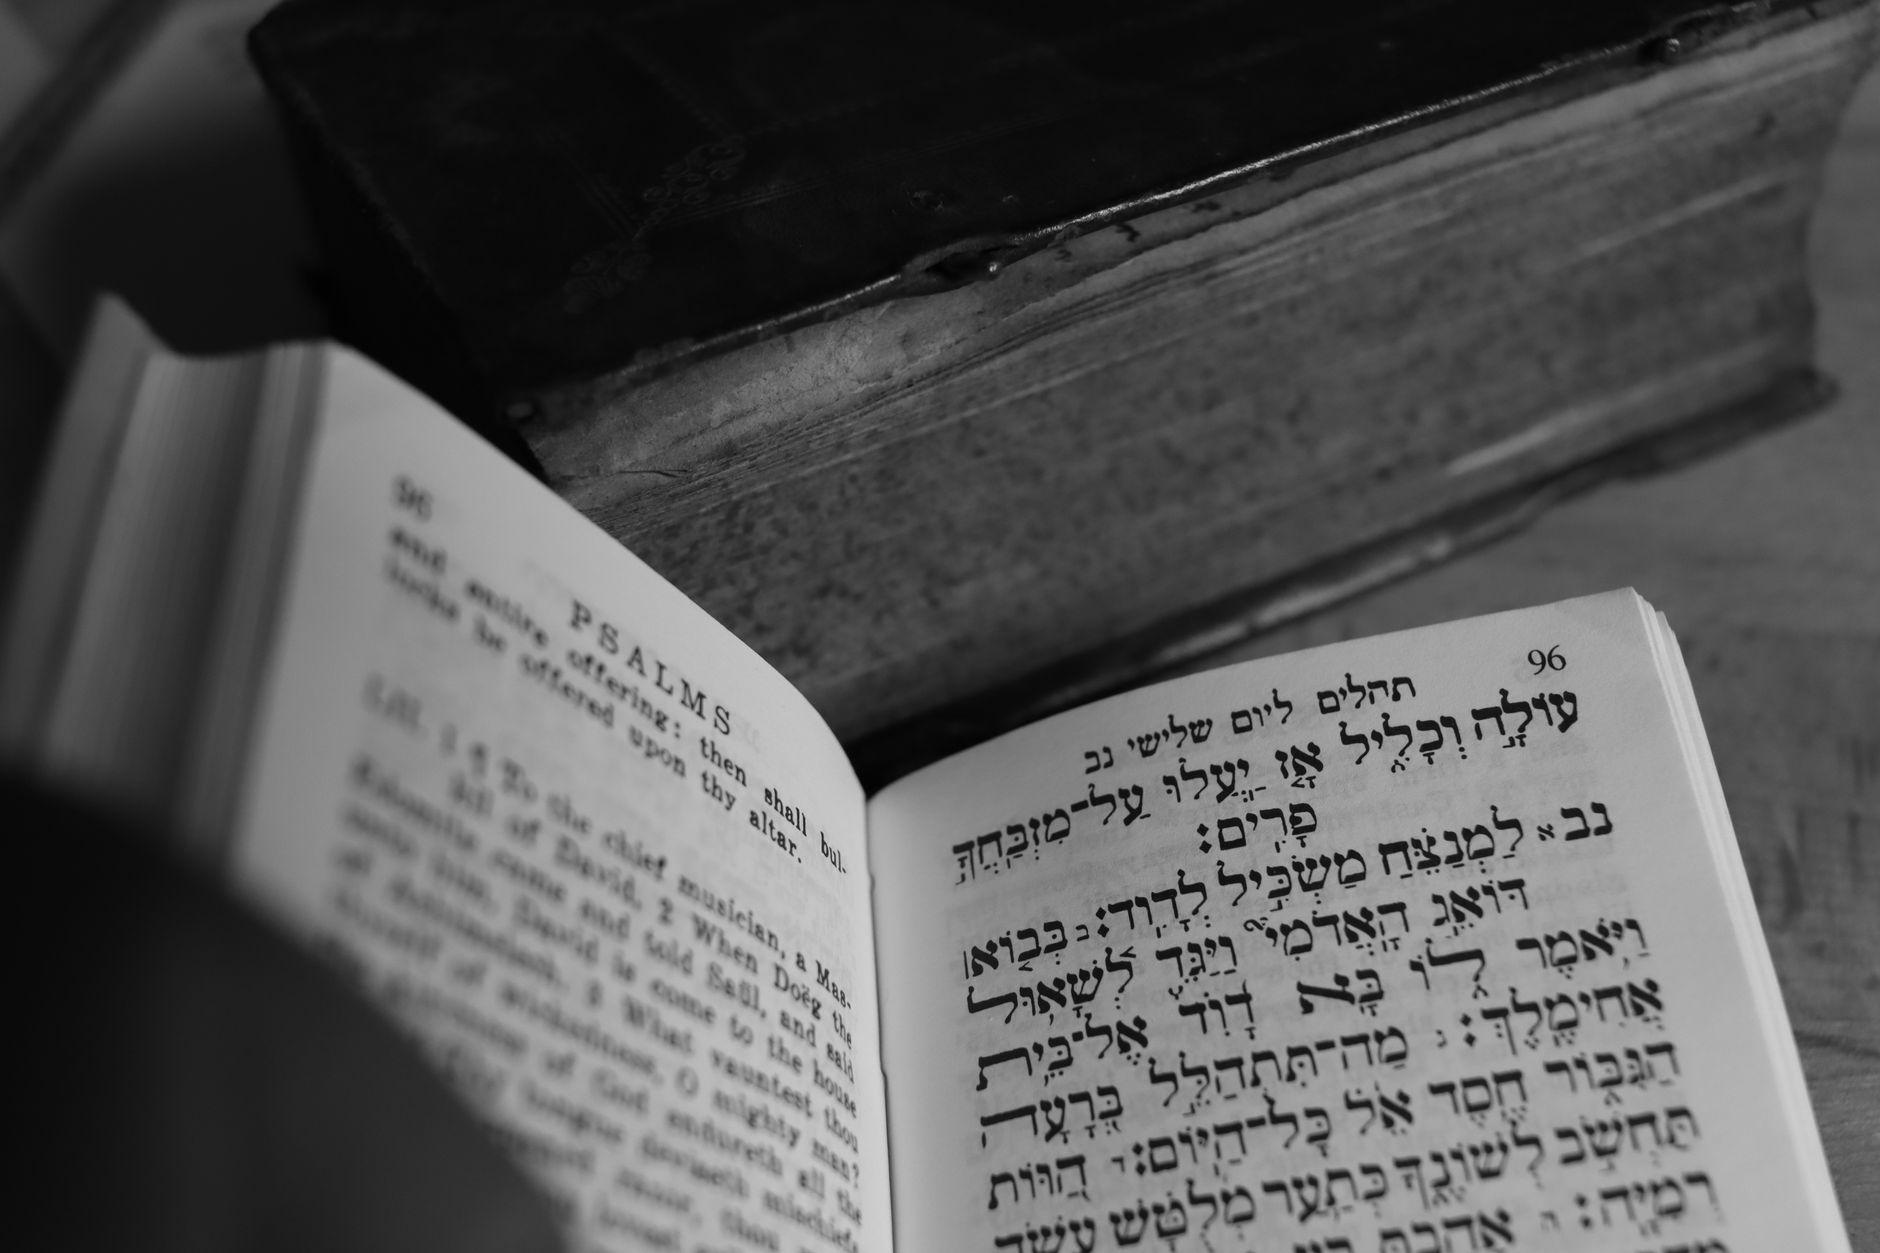 96
PSALMS
and entire offering: then shall bul-
locks be offered upon thy altar.
LII. 1 ¶ To the chief musician, a Mas-
kil of David, 2 When Doëg the
Edomite came and told Saül, and said
unto him, David is come to the house
of Achimelech. 3 What vauntest thou
thyself of wickedness, O mighty man?
of God endureth all the
tongue deviseth mischiefs
thou
96
תהלים ליום שלישי נב
עוֹלָ֣ה וְכָלִ֑יל אָ֤ז יַֽעֲל֖וּ עַל־מִזְבַּֽחֲךָ֣
פָרִֽים׃
נב א לַמְנַצֵּ֗חַ מַשְׂכִּ֥יל לְדָוִֽד׃ ב בְּב֤וֹא ׀
דּוֹאֵ֣ג הָֽאֲדֹמִי֮ וַיַּגֵּ֪ד לְשָׁ֫א֥וּל
וַיֹּ֥אמֶר ל֑וֹ בָּ֥א דָ֝וִ֗ד אֶל־בֵּ֥ית
אֲחִימֶֽלֶךְ׃ ג מַה־תִּתְהַלֵּ֣ל בְּ֭רָעָה
הַגִּבּ֑וֹר חֶ֥סֶד אֵ֝֗ל כָּל־הַיּֽוֹם׃ ד הַ֭וּוֹת
תַּחְשֹׁ֣ב לְשׁוֹנֶ֑ךָ כְּתַ֥עַר מְ֝לֻטָּ֗שׁ עֹשֵׂ֥ה
רְמִיָּֽה׃ ה אָהַ֣בְתָּ